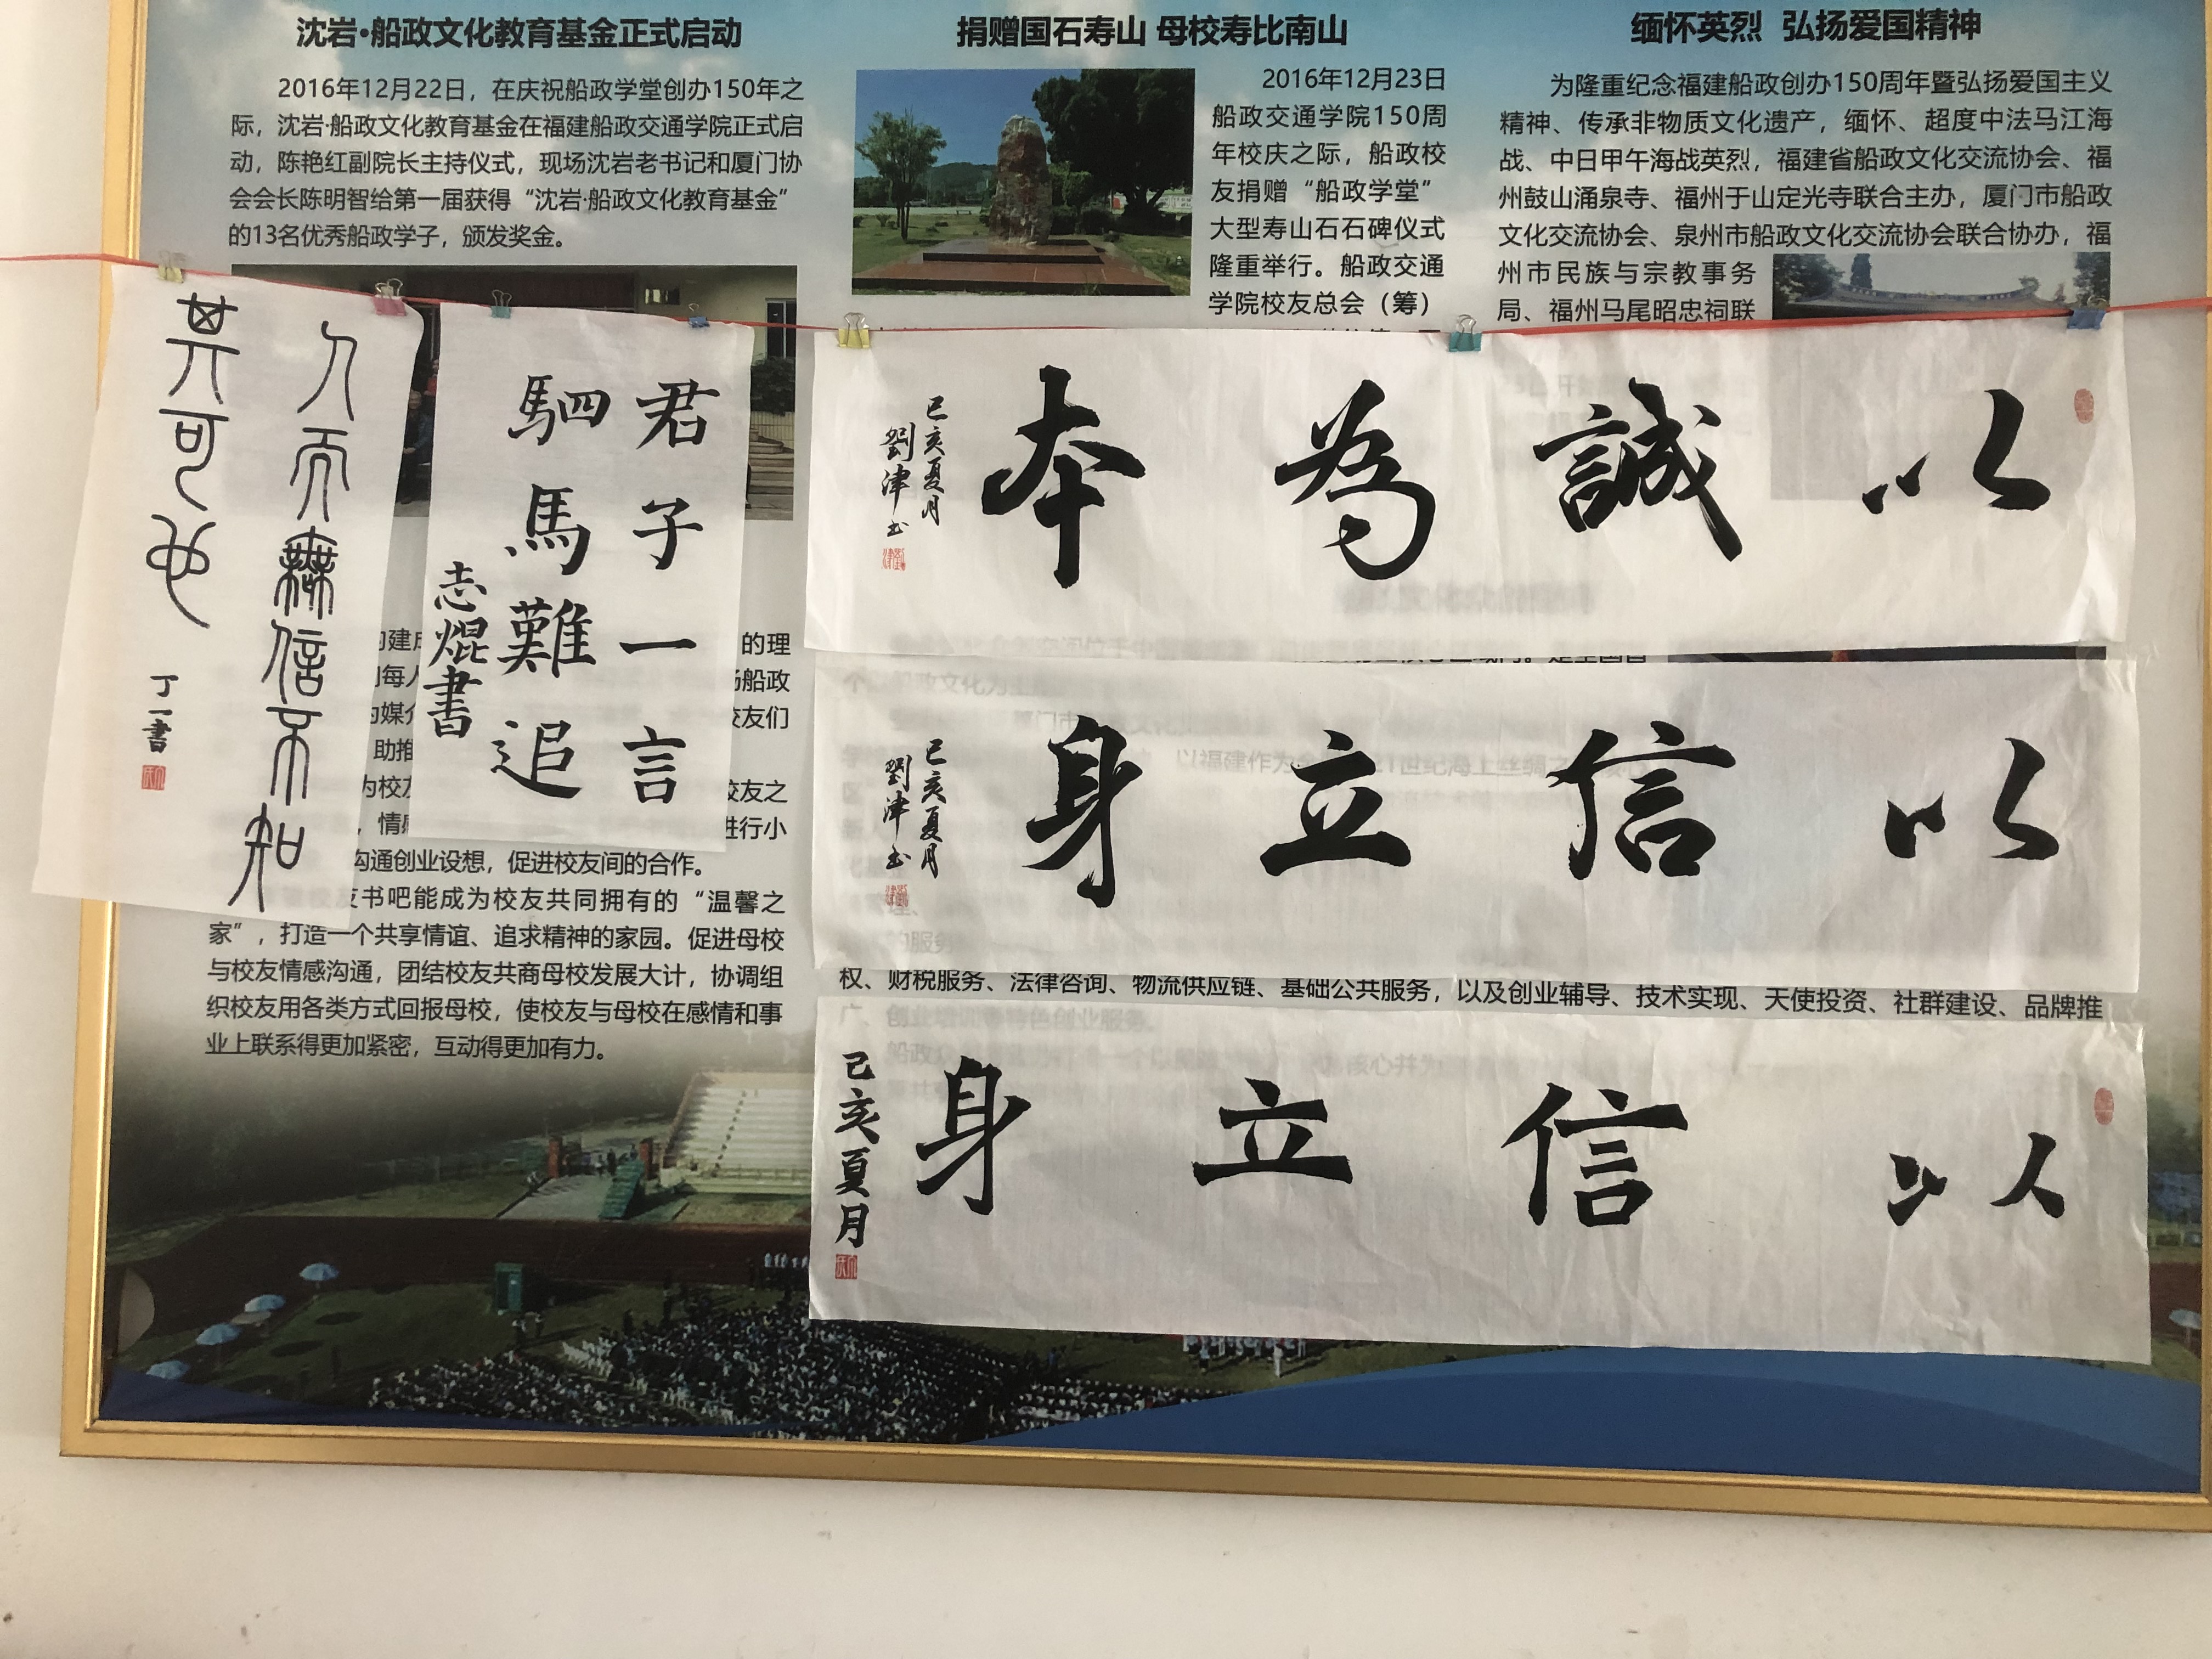 沈岩·船政文化教育基金正式启动
2016年12月22日，在庆祝船政学堂创办150年之
际，沈岩·船政文化教育基金在福建船政交通学院正式启
动，陈艳红副院长主持仪式，现场沈岩老书记和厦门协
会会长陈明智给第一届获得“沈岩·船政文化教育基金”
的13名优秀船政学子，颁发奖金。
捐赠国石寿山 母校寿比南山
2016年12月23日
船政交通学院150周
年校庆之际，船政校
友捐赠“船政学堂”
大型寿山石石碑仪式
隆重举行。船政交通
学院校友总会（筹）
缅怀英烈 弘扬爱国精神
为隆重纪念福建船政创办150周年暨弘扬爱国主义
精神、传承非物质文化遗产，缅怀、超度中法马江海
战、中日甲午海战英烈，福建省船政文化交流协会、福
州鼓山涌泉寺、福州于山定光寺联合主办，厦门市船政
文化交流协会、泉州市船政文化交流协会联合协办，福
州市民族与宗教事务
局、福州马尾昭忠祠联
人而無信不知
其可也
丁一書
君子一言
駟馬難追
志焜書
以誠為本
己亥夏月
劉津书
以信立身
己亥夏月
劉津书
以信立身
己亥夏月
的理
船政
友们
助推
为校
校友之
情
进行小
沟通创业设想，促进校友间的合作。
友书吧能成为校友共同拥有的“温馨之
家”，打造一个共享情谊、追求精神的家园。促进母校
与校友情感沟通，团结校友共商母校发展大计，协调组
织校友用各类方式回报母校，使校友与母校在感情和事
业上联系得更加紧密，互动得更加有力。
权、财税服务、法律咨询、物流供应链、基础公共服务，以及创业辅导、技术实现、天使投资、社群建设、品牌推
广、创业培训等特色创业服务。